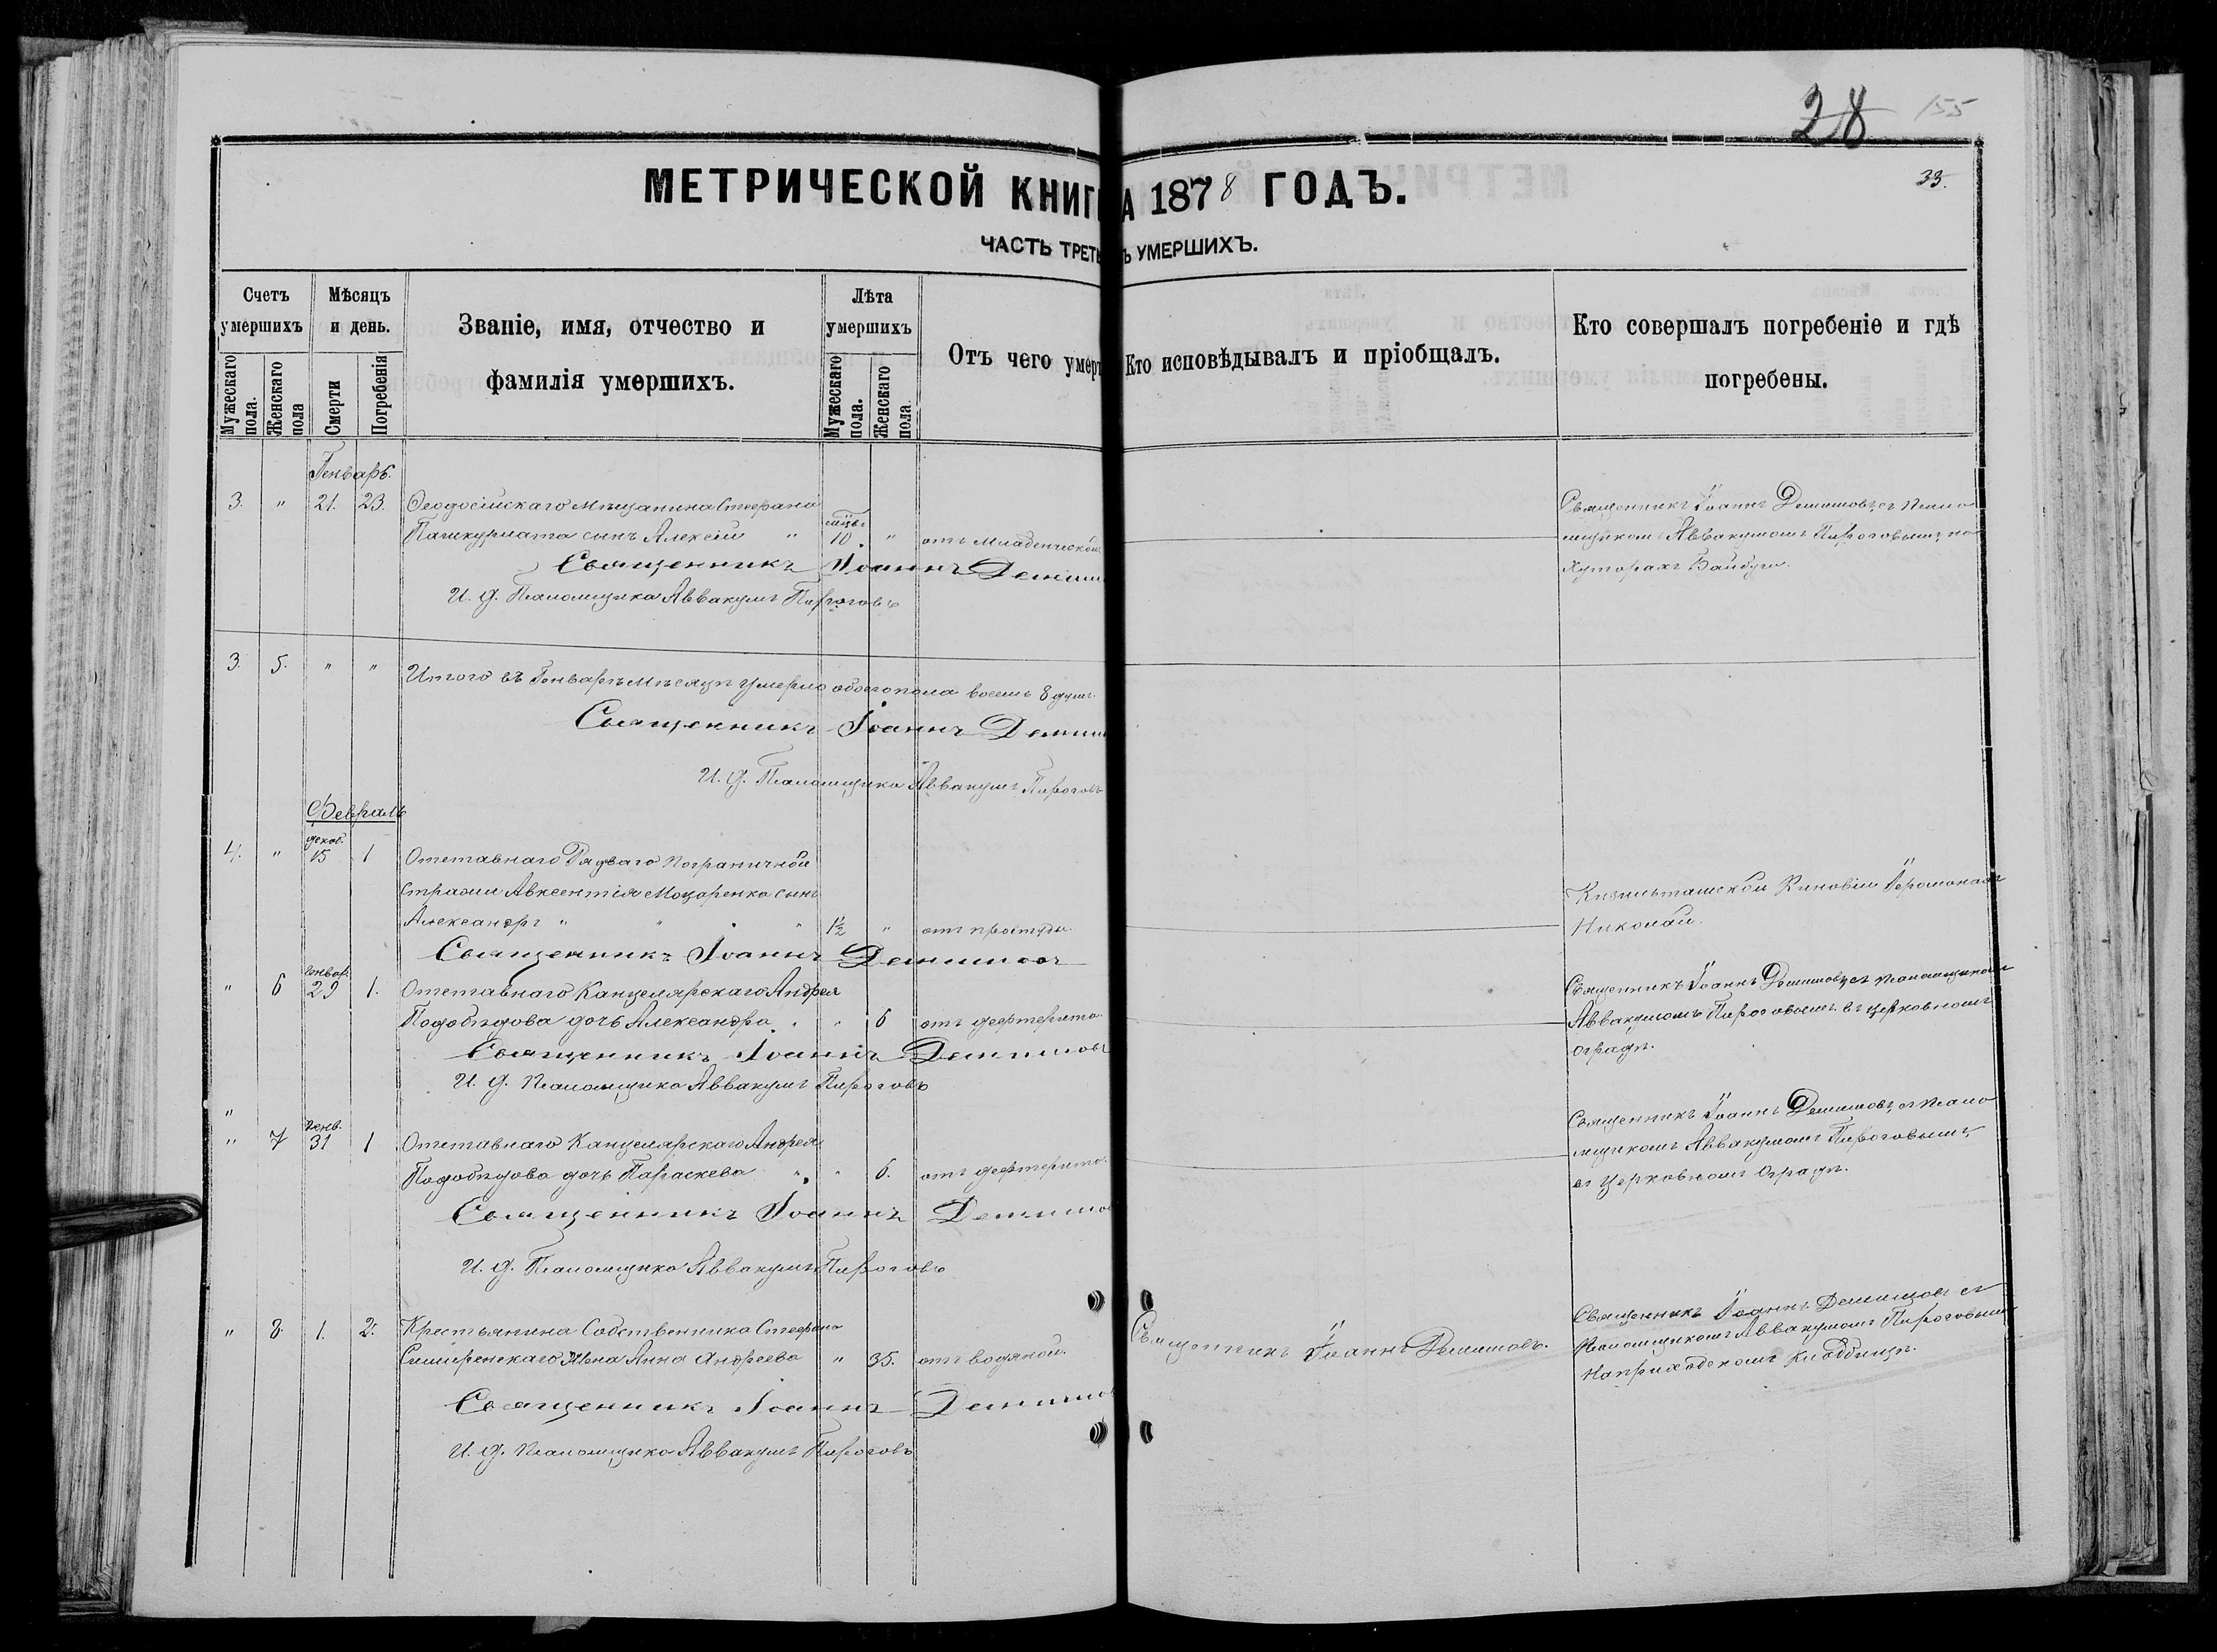 28 155
МЕТРИЧЕСКОЙ КНИГ А 1878 ГОДЪ.
33.
ЧАСТЬ ТРЕТЬ Ъ УМЕРШИХЪ.
Счетъ умершихъ
Мужескаго пола.
Женскаго пола
Мѣсяцъ и день.
Смерти
Погребенія
Званіе, имя, отчество и фамилія умершихъ.
Лѣта умершихъ
Мужескаго пола.
Женскаго пола.
Отъ чего умерт
Кто исповѣдывалъ и пріобщалъ.
Кто совершалъ погребеніе и гдѣ погребены.
Генварь.
3. " 21. 23. Ѳеодосійскаго мѣщанина Стефана
сынъ Алексій " 10. " отъ младенческой
Священникъ Іоаннъ
И. д. Псаломщика Аввакумъ Пироговъ
Священникъ Іоаннъ Демишовъ съ псало
мщикомъ Аввакумомъ Пироговымъ, на
хуторахъ Байбуги.
3. 5. " " Итого въ Генварѣ мѣсяцѣ умерло обоего пола восемь 8 душъ.
Священникъ Іоаннъ
И. д. Псаломщика Аввакумъ Пироговъ
Февраль
декаб.
4. " 15 1 Отставнаго Рядваго пограничной
стражи Авксентія Моцаренко сынъ
Александръ " " " " 1½ " отъ простуды.
Священникъ Іоаннъ Демишовъ
Кизильташской Киновіи Іеромонахъ
Николай.
Генвар.
" 6 29 1. Отставнаго Канцелярскаго Андрея
Подобѣдова дочь Александра " " 6 отъ дефтерита.
Священникъ Іоаннъ Демишовъ
И. д. Псаломщика Аввакумъ Пироговъ
Священникъ Іоаннъ Демишовъ съ псаломщикомъ
Аввакумомъ Пироговымъ въ церковномъ
оградѣ.
"
Генв.
" 7 31 1 Отставнаго Канцелярскаго Андрея
Подобѣдова дочь Параскева " " 6. отъ дефтерита.
Священникъ Іоаннъ Демишов
И. д. Псаломщика Аввакумъ Пироговъ
Священникъ Іоаннъ Демишовъ, съ псало
мщикомъ Аввакумомъ Пироговымъ,
въ церковномъ оградѣ.
" 8. 1. 2. Крестьянина Собственника Стефана
жена Анна Андреева " 35. отъ водяной.
Священникъ Іоаннъ
И. д. Псаломщика Аввакумъ Пироговъ
Священникъ Іоаннъ Демишовъ.
Священникъ Іоаннъ Демишовъ съ
Псаломщикомъ Аввакумомъ Пироговымъ
на приходскомъ кладбищѣ.